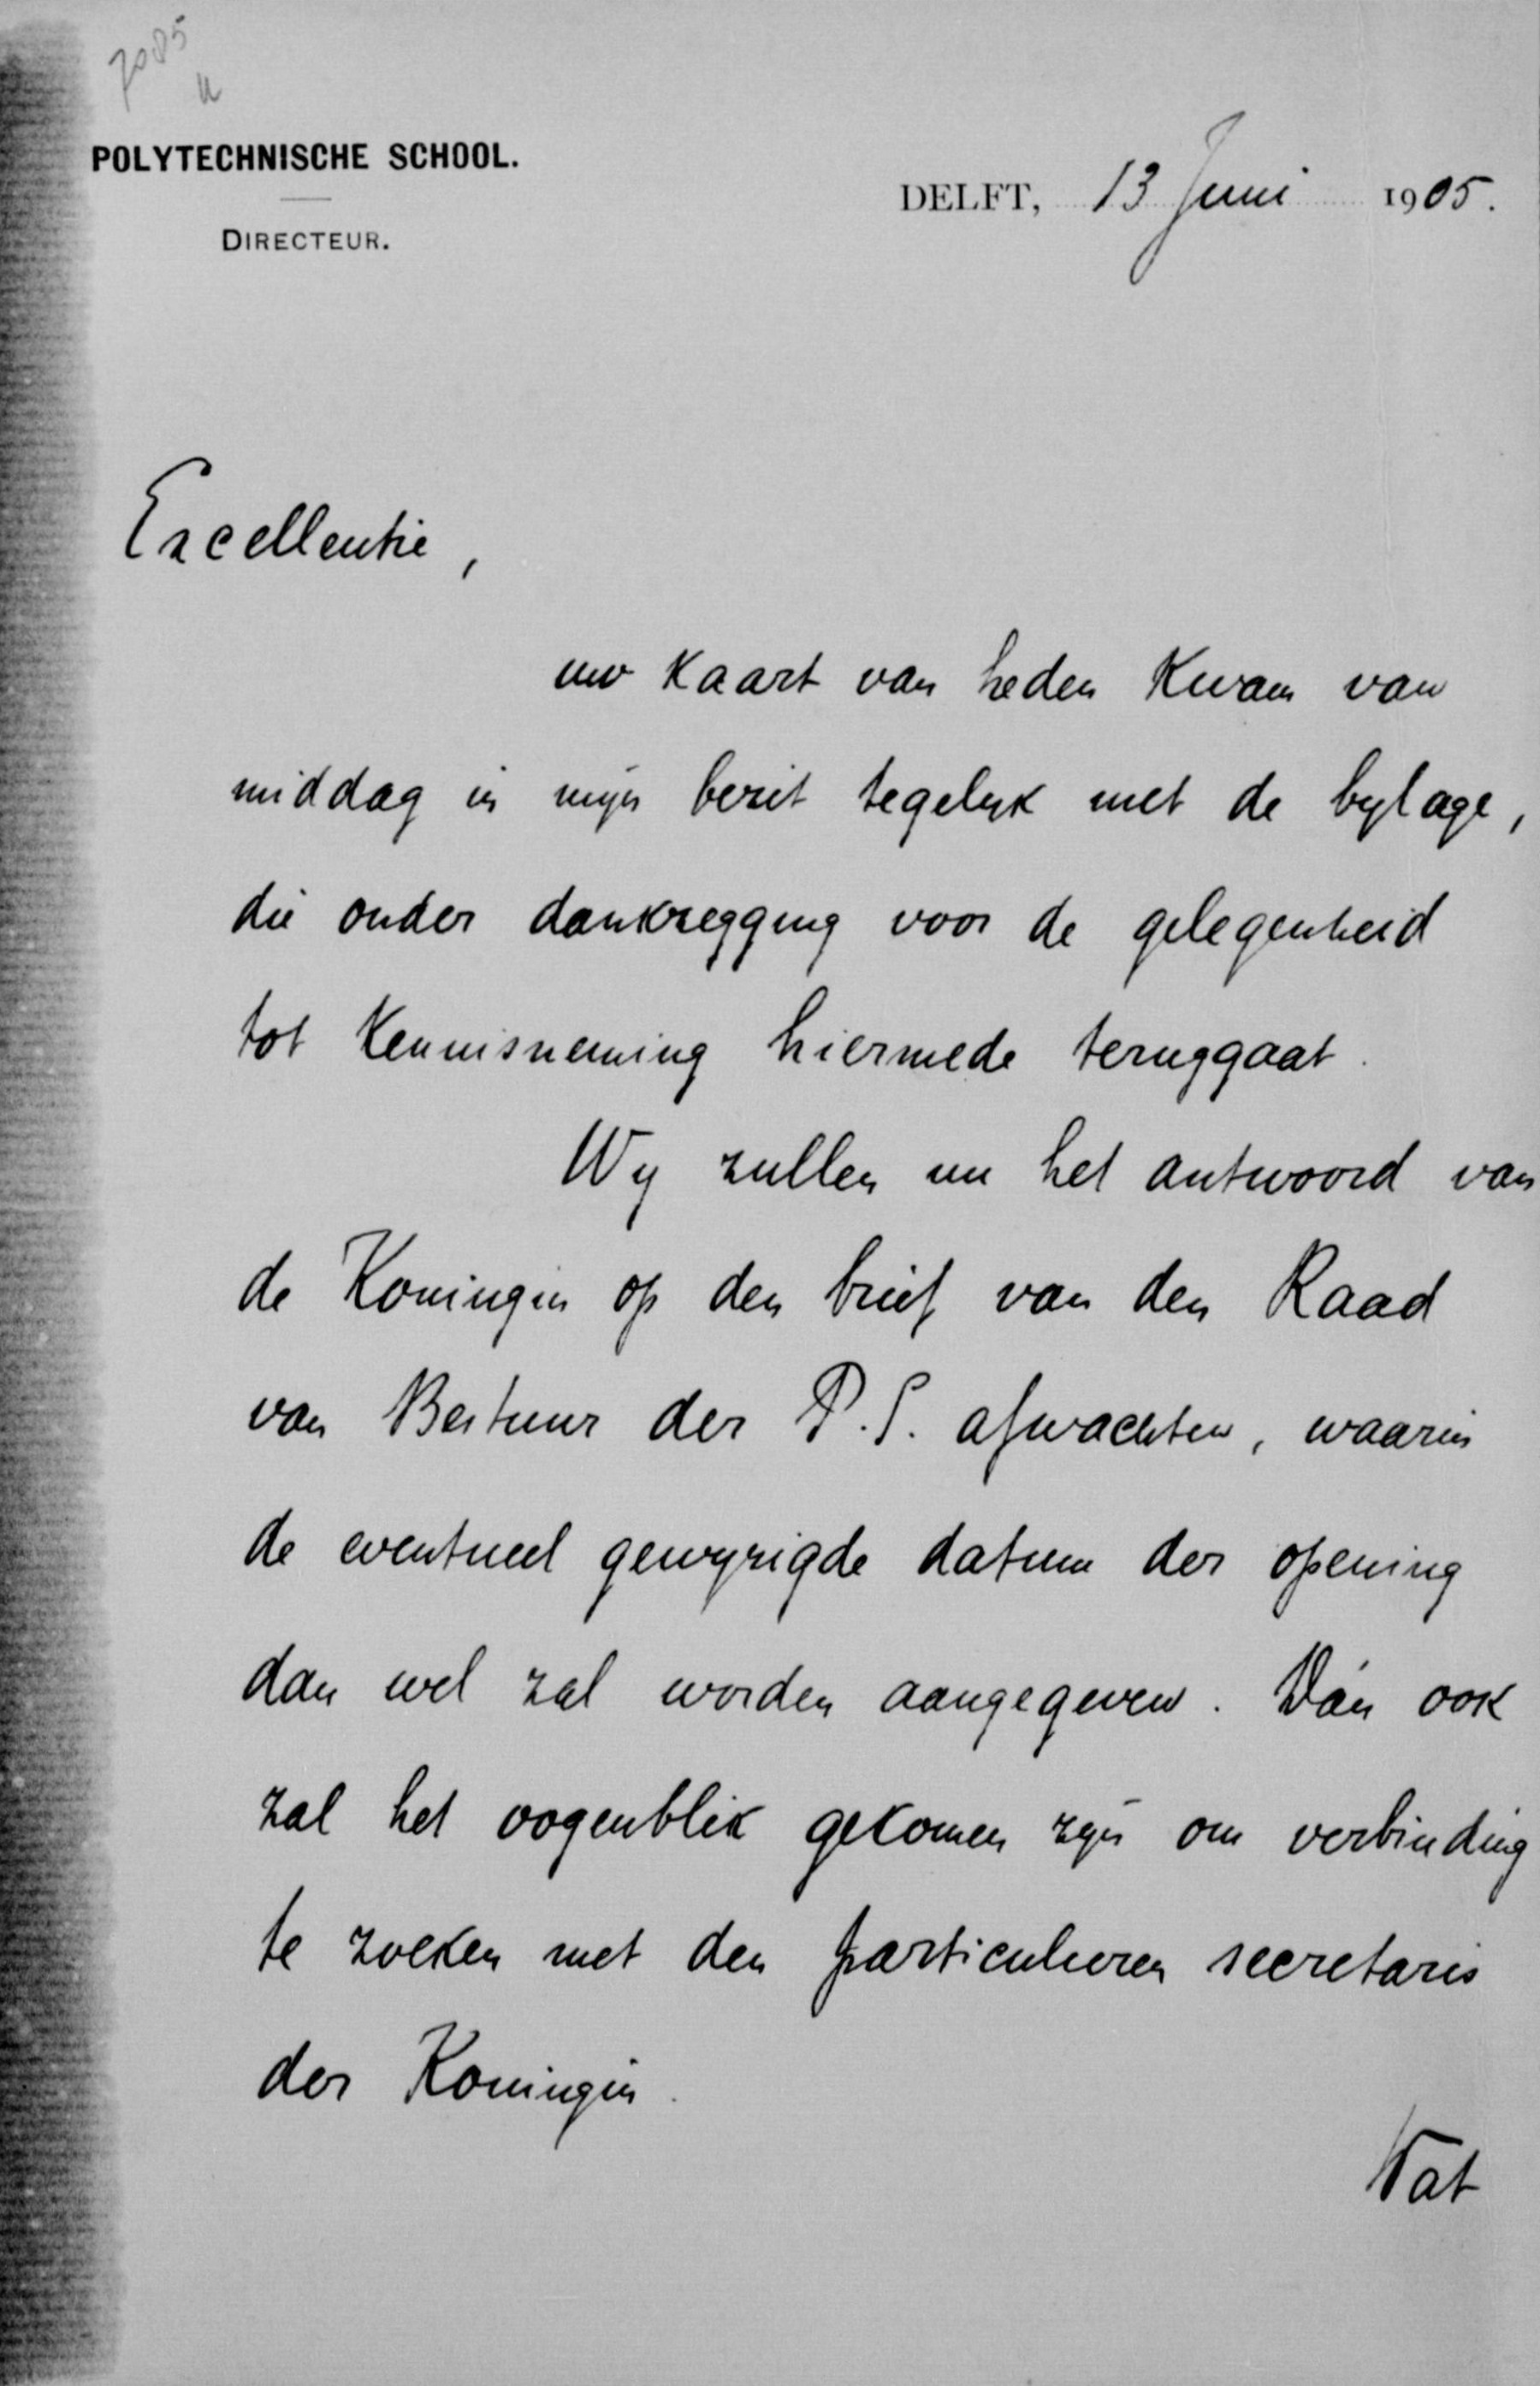 7085
POLYTECHNISCHE SCHOOL.
DIRECTEUR.
DELFT, 13 Juni 1905.
Excellentie,
uw kaart van heden kwam van
middag in mijn bezit tegelijk met de bijlage,
die onder dankzegging voor de gelegenheid
tot kennisneming hiermede teruggaat.
Wij zullen nu het antwoord van
de Koningin op den brief van den Raad
van Bestuur der P.S. afwachten, waarin
de eventueel gewijzigde datum der opening
dan wel zal worden aangegeven. Dán ook
zal het oogenblik gekomen zijn om verbinding
te zoeken met den particulieren secretaris
der Koningin.
Dat